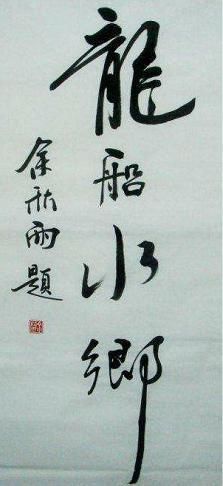 龍船水鄉
余秋雨題